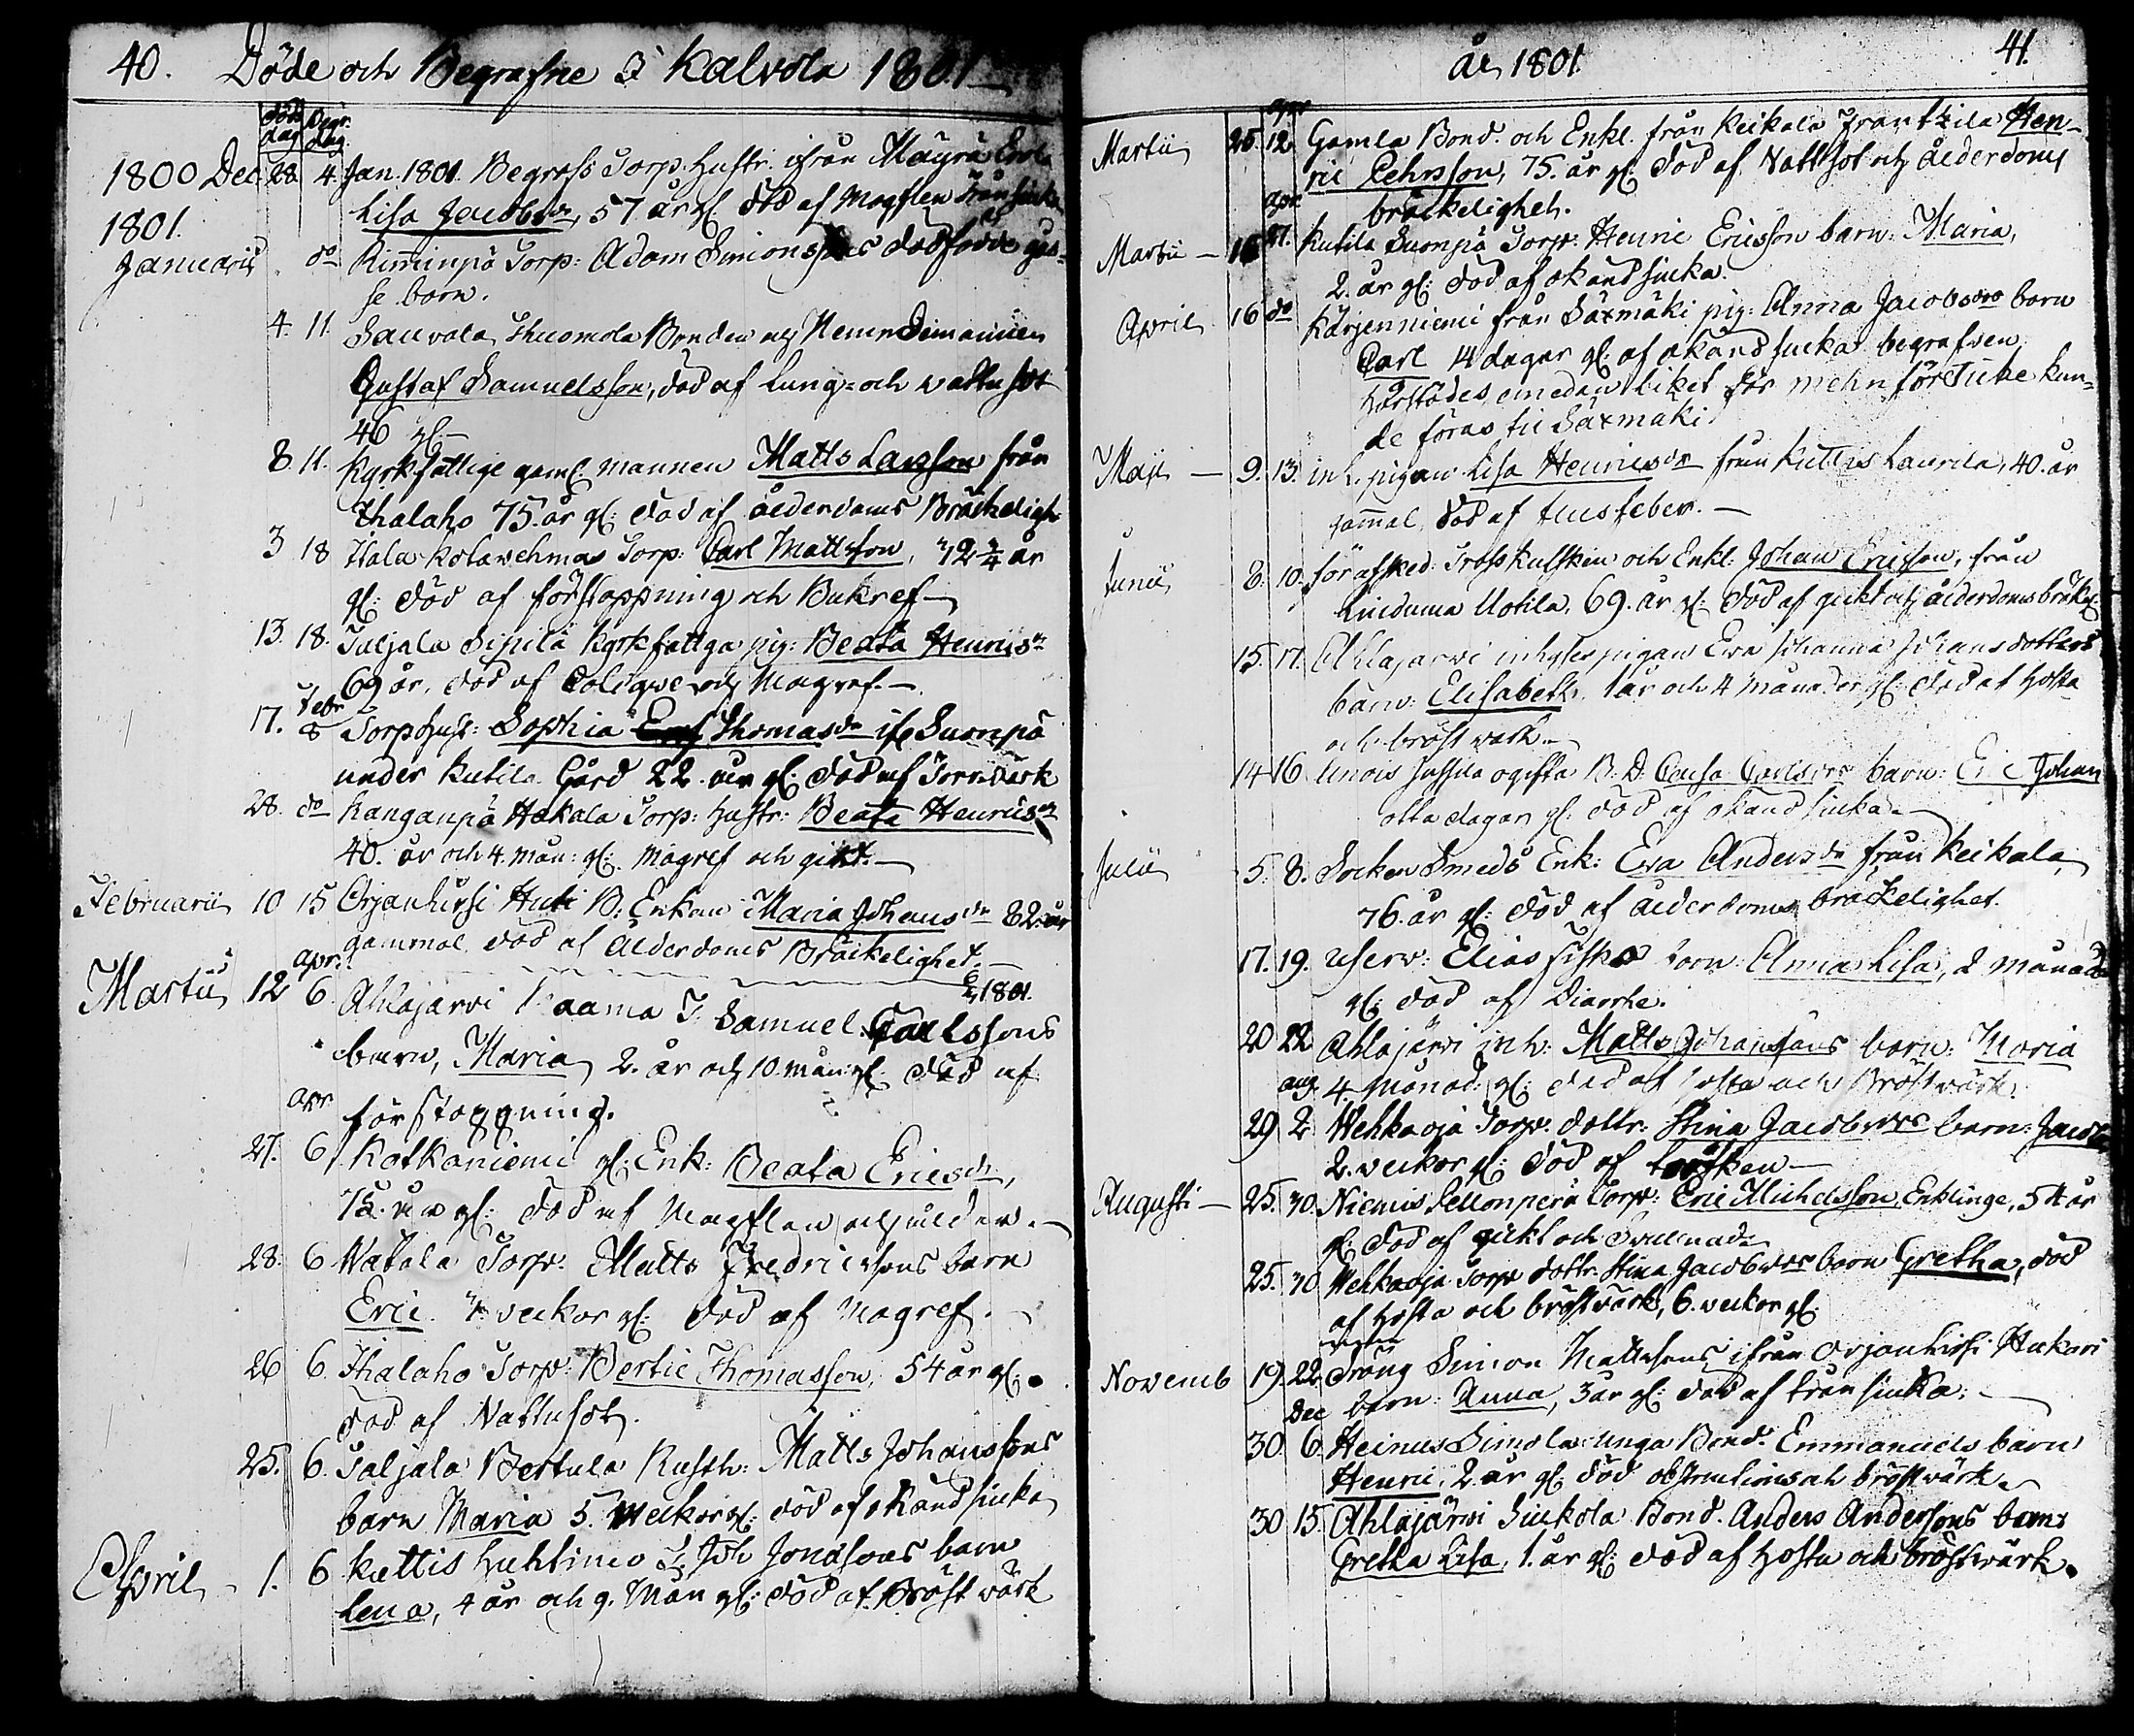 40. Döde och Begrafne i Kalvola 1801
död dag Begr. dag
1800 Dec. 28. 4. Jan. 1801. Begrofs Torp: Hustr. ifrån Mäyrä
Lisa Jacobsdr, 57 år gl. död af Magflen
1801.
Januarii do Kiminpä Torp: Adam Simonssons dödfödde gos-
se barn.
4. 11. Sauvala, Thuomola Bonden och Nemndemannen
Gustaf Samuelsson, död af Lung- och wattusot
46 gl.
8. 11. Kyrkfattige gaml. mannen Matts Larsson från
Ihalaho 75. år gl: död af ålderdoms Bräckeligh.
3 18 Itala Kotawehmas Torp: Carl Mattsson, 72 3/4 år
gl: död af förstoppning och Bukref
13. 18. Taljala Sipilä kyrkfattga pig: Beata Henricsdr
69 år, död af Colique och Magref.
Febr.
17. 8 Torp. Hust: Sophia Thomasdr if. Suonpä
under Kutila Gård 22. år gl: död af Torrwärk
28. do Kanganpä Hakala Torp: Hustr: Beata Henricsdr
40. år och 4. mån: gl: Magref och gikt.
Februarii 10 15 Orjanhirsi Huti B: Enkan Maria Johansdr 82. år
gammal, död af Ålderdoms Bräckelighet.
apr. 1801.
Martii 12 6. Ahlajärvi Samuel Carlssons
barn, Maria, 2. år och 10. mån: gl: död af
apr förstoppning.
27. 6 Kotkaniemi gl: Enk: Beata Ericsdr,
75. år gl: död af Magflen och ålder.
28. 6 Watala Torp: Matts Fredricssons barn
Eric 7. veckor gl: död af Magref.
26 6. Ihalaho Torp: Bertil Thomasson, 54 år gl:
död af Wattusot.
25. 6. Taljala Bertula Rusth: Matts Johanssons
barn Maria 5. Weckor gl: död af okänd siuka
April 1. 6 Kuttis Huhtimo T. Joh Jonassons barn
Lena, 4 år och 9. Mån gl: död af Bröstwärk
år 1801. 41.
apr
Martii 25. 12 Gamla Bond. och Enkl. från Keikala Franttila Hen-
ric Pehrsson, 75. år gl: död af Wattsot och ålderdoms
apr. bräckelighet.
Martii 16 17. Kutila Suonpä Torp: Henric Ericsson barn: Maria,
2. år gl: död af okänd siuka.
April 16 do Kärjenniemi från Säxmäki pig: Anna Jacobsdrs barn
Carl 14 dagar gl: af okänd siuka begrafven
härstädes, emedan Liket för menföre icke kun-
de föras til Säxmäki.
Maji 9. 13. inh. pigan Lisa Henricsdr från Kuttis Laurila, 40. år
gammal, död af
Junii 8. 10. för afsked: Trosskusken och Enkl: Johan Ericsson, från
Linduma Uotila, 69. år gl: död af gikt och ålderdomsbräkl:
15. 17. Ahlajärvi inhyses pigan Eva Johanna Johansdotters
barn: Elisabeth, 1 år och 4 månader gl: död af Hosta
och bröstwärk.
14 16 Unois Jussila ogifta B: D: Caisa Carlsdrs barn: Eric Johan
otta dagar gl: död af okänd siuka.
Julii 5. 8. Sockensmeds Enk: Eva Andersdr från Keikala,
76. år gl: död af ålderdoms bräckelighet.
17. 19. Elias barn: Anna Lisa, 2 månader
gl: död af Diarrhe.
20 22 Ahlajärvi inh: Matts Johanssons barn: Maria
aug. 4. Månad: gl: död af hosta och Bröstwärk.
29 2 Wehkaoja Torp: dottr: Stina Jacobsdrs barn: Jacob
2. veckor gl: död af
Augusti 25. 30. Niemis Pellonperä Torp: Eric Michelsson, Enklinge, 54 år
gl: död af gickt och Swullnad.
25. 30 Wehkaoja Torp. dottr. Stina Jacobsdrs barn Gretha, död
af Hosta och bröstvärk, 6. weckor gl:
Novemb 19. 22 Dräng Simon Mattssons ifrån Orjanhirsi Hukari
Dec barn: Anna, 3 år gl: död af
30. 6. Heinus Simola unga Bond. Emmanuels barn
Henric, 2. år gl: död obstructions och bröstwärk.
30 15. Ahlajärvi Siukola Bond. Anders Anderssons barn:
Gretha Lisa, 1. år gl: död af Hosta och bröstwärk.